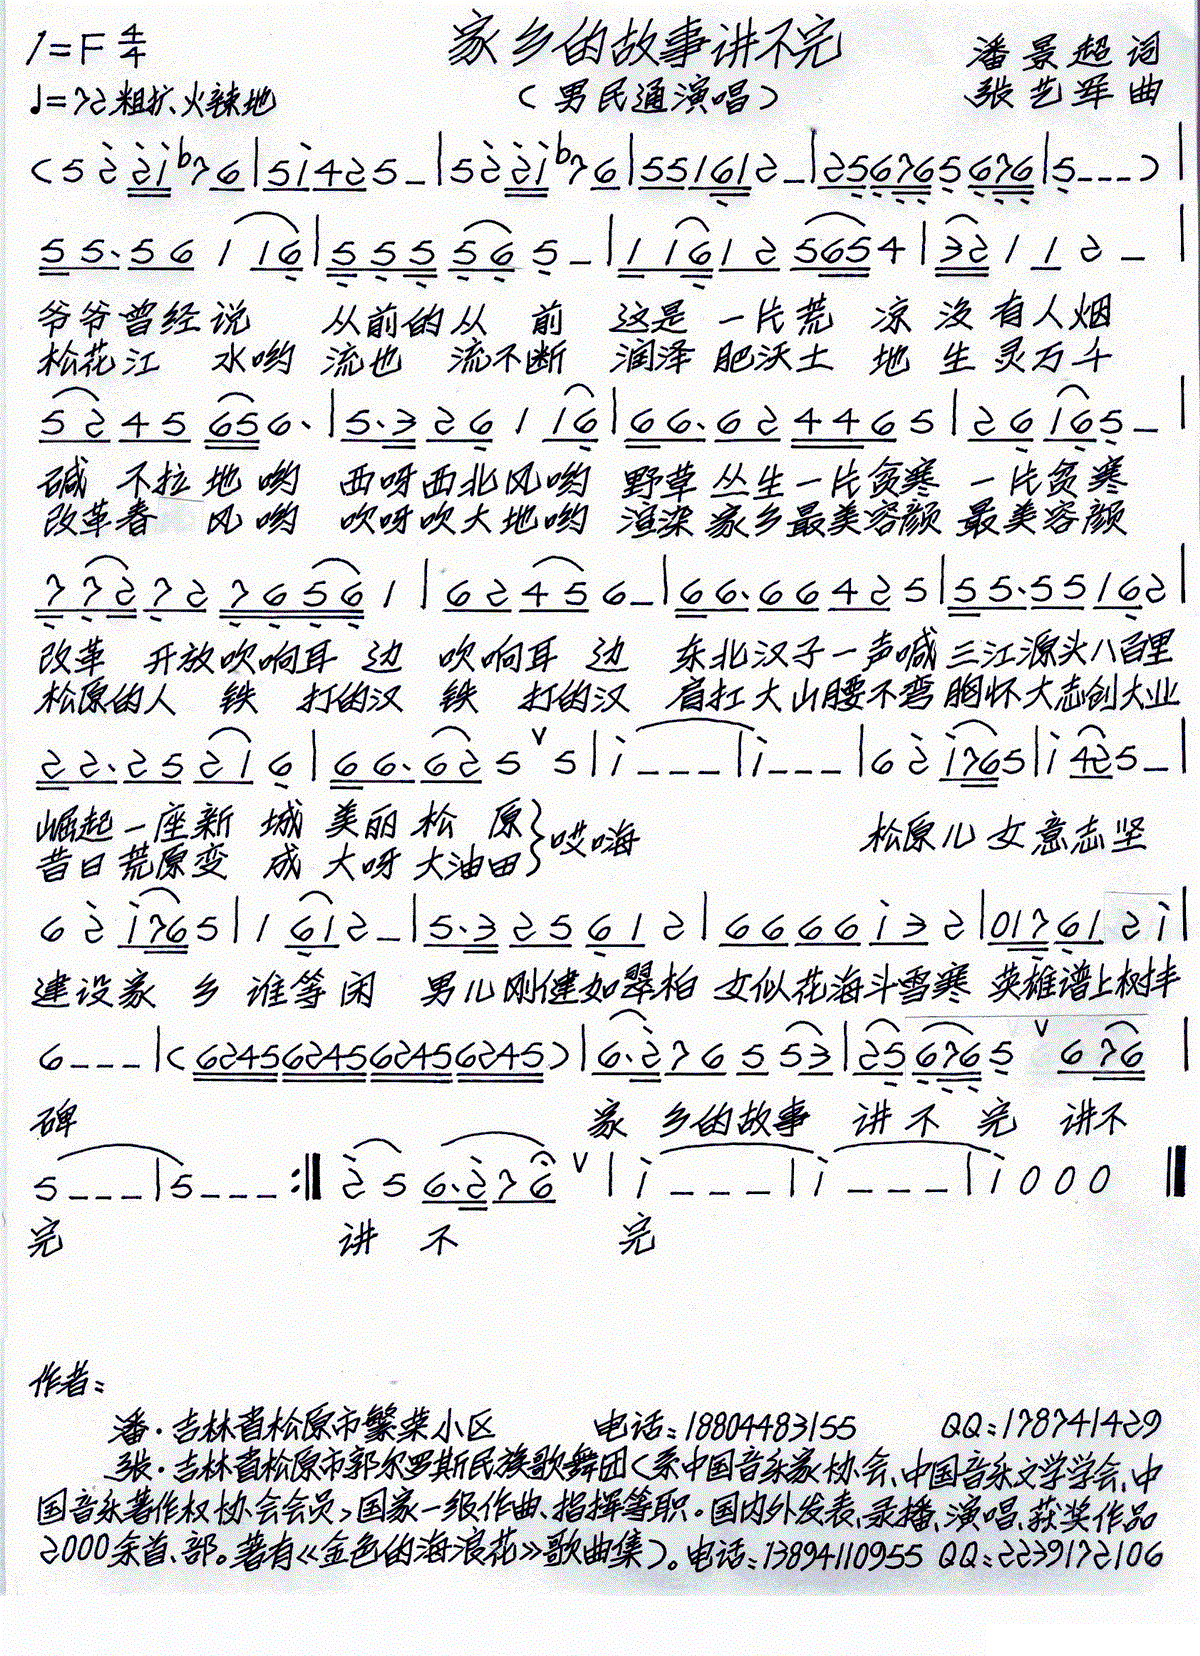 家乡的故事讲不完
1=F 4/4
潘景超 词
♩=72 粗犷、火辣地
（男民通演唱）
张艺军 曲
(5 2̇ 2̇1̇ b7 6|51̇425 _|5 2̇ 2̇1̇ b7 6|551612 _|25676 5 676|5 _ _ _)|
55·56 1 16|555 56 5 _|1 1612 5654|32 1 1 2 _|
爷爷曾经说 从前的从 前 这是 一片荒 凉 没有人烟
松花江 水哟 流也 流不断 润泽 肥沃土 地 生 灵万千
52 45 656·|5·3 26 1 16|66·62 44 65|26 165 _|
碱 不拉 地 哟 西呀西北风哟 野草丛生一片贫寒 一片贫寒
改革春 风 哟 吹呀吹大地哟 渲染家乡最美容颜 最美容颜
772 72 7656 1|62 456 _|66·66 425|55·55 162|
改革 开放吹响耳 边 吹响耳 边 东北汉子一声喊 三江源头八百里
松原的人 铁 打的汉 铁 打的汉 肩扛大山腰不弯 胸怀大志创大业
22·25 21 6|66·625 ∨5|1̇ _ _ _|1̇ _ _ _|6 2̇ 1̇765|1̇ 425 _|
崛起一座新 城 美丽 松 原}哎嗨 松原儿女意志坚
昔日荒原变 成 大呀大油田
6 2̇ 1̇765|1 612 _|5·3 25 61 2|6666 1̇32|017 61 2 1̇|
建设家 乡 谁等闲 男儿刚健如翠柏 女似花海斗雪寒 英雄谱上树丰
6 _ _ _|(6245 6245 6245 6245)|6·2̇76 5 53|25 6765 ∨ 6 76|
碑 家 乡的故事 讲 不 完 讲不
5 _ _ _|5 _ _ _:‖2̇ 5 6·2̇76 ∨|1̇ _ _ _|1̇ _ _ _|1̇ 0 0 0‖
完 讲 不 完
作者:
潘·吉林省松原市繁荣小区 电话:18804483155 QQ:178741429
张·吉林省松原市郭尔罗斯民族歌舞团(系中国音乐家协会、中国音乐文学学会、中
国音乐著作权协会会员>国家一级作曲、指挥等职。国内外发表、录播、演唱、获奖作品
2000余首、部。著有《金色的海浪花》歌曲集)。电话:13894110955 QQ:2239172106